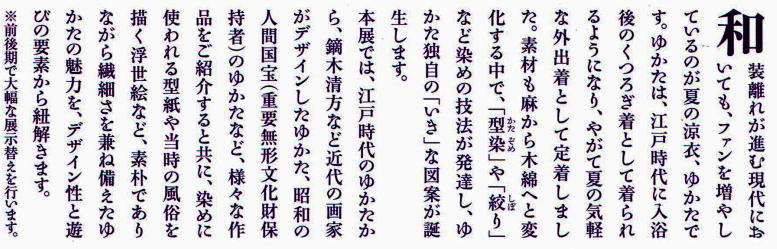 和装離れが進む現代にお
いても、ファンを増やし
ているのが夏の涼衣、ゆかたで
す。ゆかたは、江戸時代に入浴
後のくつろぎ着として着られ
るようになり、やがて夏の気軽
な外出着として定着しまし
た。素材も麻から木綿へと変
化する中で、「型染」や「絞り」
など染めの技法が発達し、ゆ
かた独自の「いき」な図案が誕
生します。
本展では、江戸時代のゆかたか
ら、鏑木清方など近代の画家
がデザインしたゆかた、昭和の
人間国宝（重要無形文化財保
持者）のゆかたなど、様々な作
品をご紹介すると共に、染めに
使われる型紙や当時の風俗を
描く浮世絵など、素朴であり
ながら繊細さを兼ね備えたゆ
かたの魅力を、デザイン性と遊
びの要素から紐解きます。
※前後期で大幅な展示替えを行います。